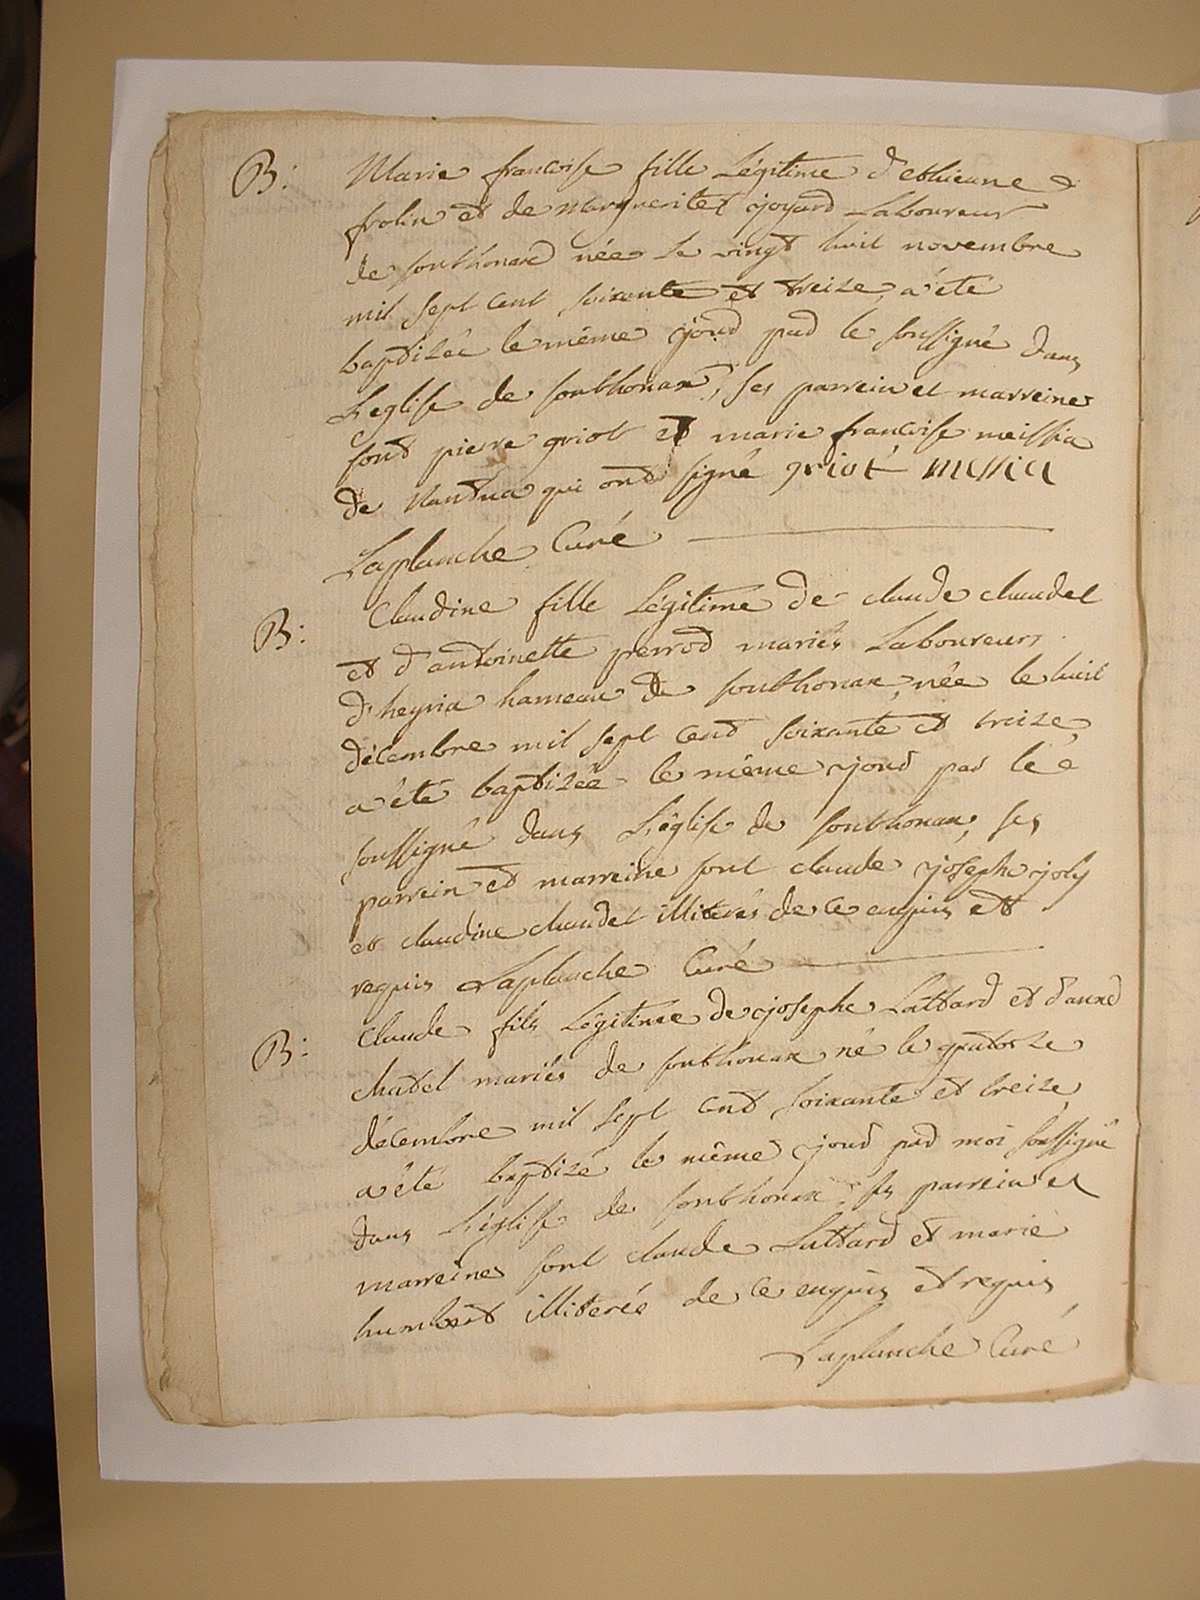 B: Marie francoise fille Légitime d'ethienne
frolin et de Marguerite joyard Laboureur
de sonthonax née le vingt huit novembre
mil sept cent soixante et treize, a été
baptizée le même jour par le soussigné dans
L'eglise de sonthonax, ses parrein et marreines
sont pierre griot et marie francoise meissia
de Nantua qui ont signé griot messia
Laplanche Curé
B: Claudine fille Légitime de claude chaudet
et d'antoinette perrod mariés Laboureurs
d'heyria hameau de sonthonax, née le huit
décembre mil sept cent soixante et treize,
a été baptizée le même jour par le
soussigné dans L'église de sonthonax, ses
parrein et marreine sont claude joseph joly
et claudine chaudet illiterés de ce enquis et
requis Laplanche Curé
B: Claude fils Légitime de josephe Lattard et d'anne
chatel mariés de sonthonax né le quatorze
décembre mil sept cent soixante et treize
a été baptizé le même jour par moi soussigné
dans L'église de sonthonax. ses parrein et
marreines sont claude Lattard et marie
humbert illiterée de ce enquis et requis
Laplanche Curé